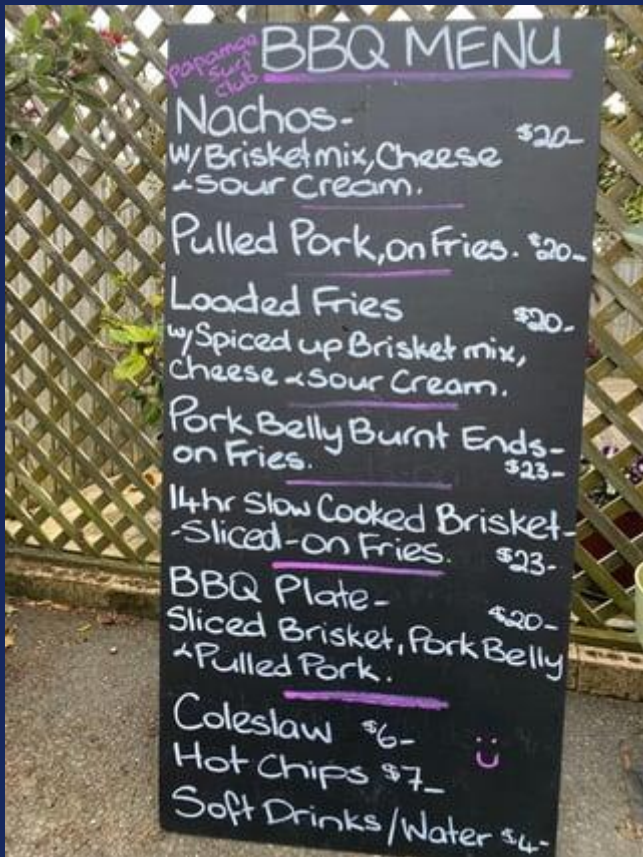 Papamoa
Surf
Club
BBQ MENU
Nachos-
$20-
w/Brisket mix, Cheese
& Sour Cream.
Pulled Pork, on Fries. $20-
Loaded Fries
$20-
w/Spiced up Brisket mix,
Cheese & Sour Cream.
Pork Belly Burnt Ends-
on Fries.
$23-
14hr Slow Cooked Brisket-
-Sliced-on Fries. $23-
BBQ Plate-
$20-
Sliced Brisket, Pork Belly
& Pulled Pork.
Coleslaw $6-
Hot Chips $7-
Soft Drinks/Water $4-